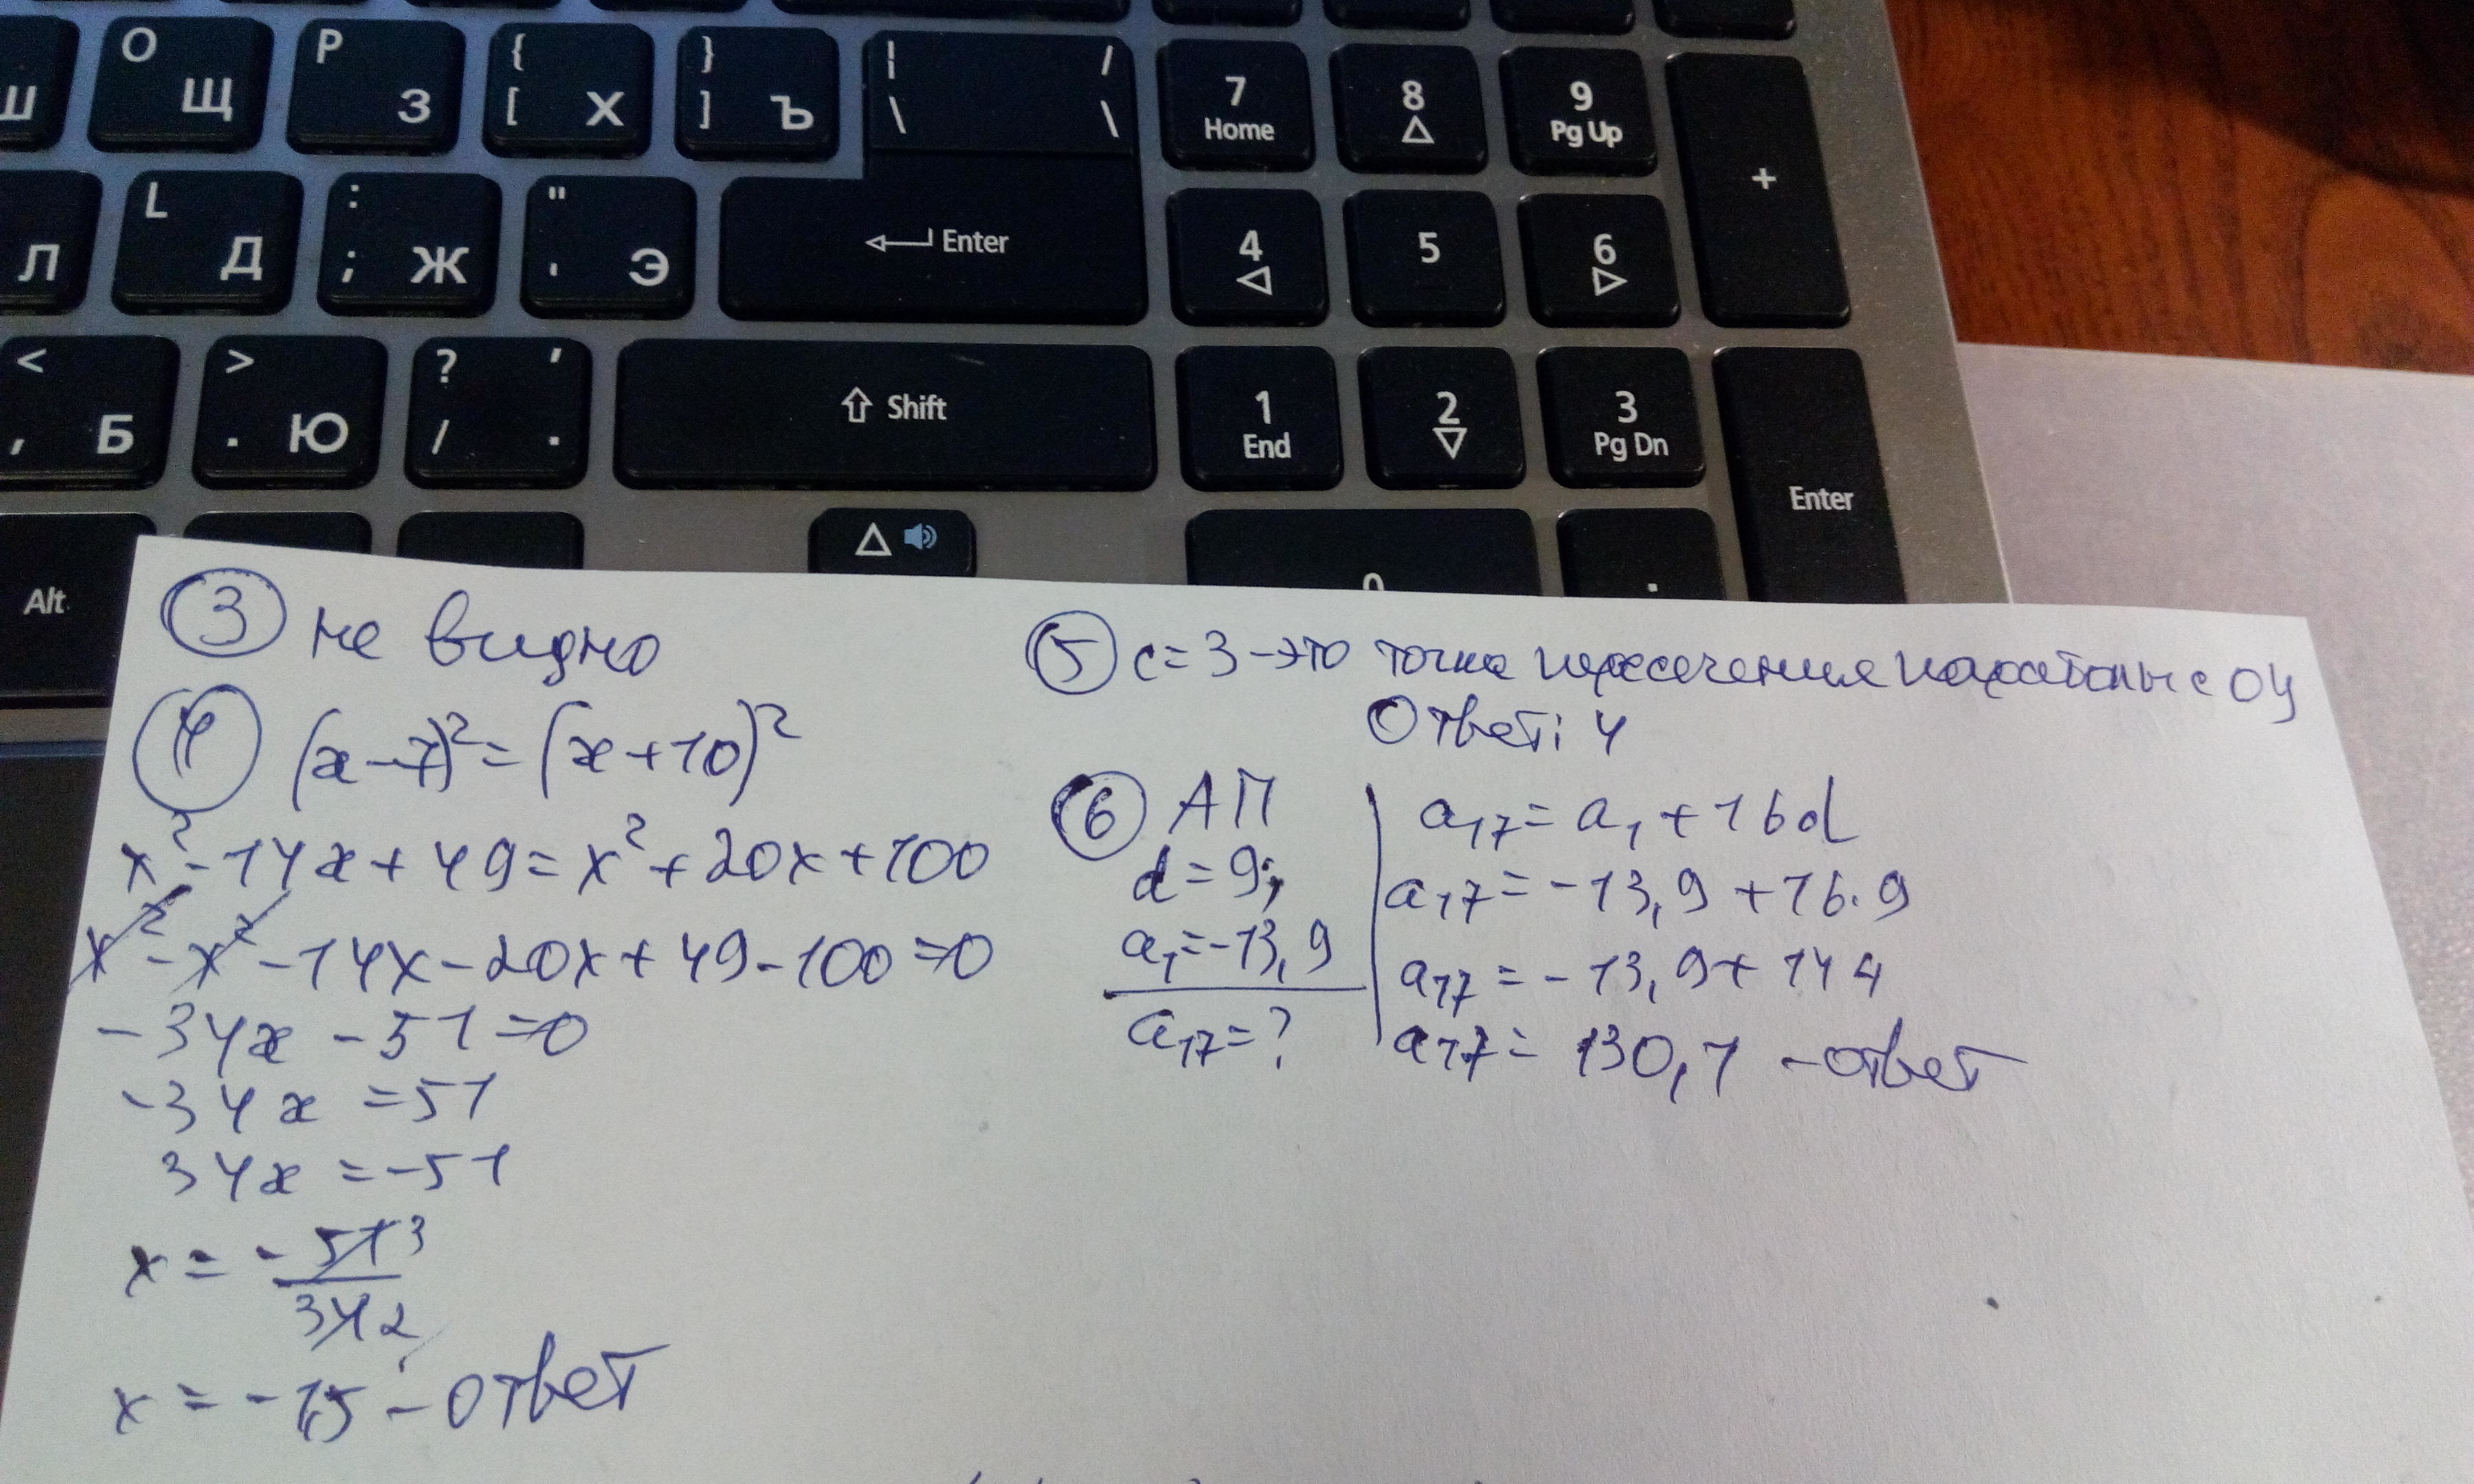 Ш O Щ P З { [ Х } ] Ъ | \ / \ 7 Home 8 9 Pg Up +
Л L Д : ; Ж " ' Э Enter 4 5 6
< , Б > . Ю ? / , . Shift 1 End 2 3 Pg Dn Enter
Alt 0 .
3 не видно
4 (x-7)²=(x+10)²
x²-14x+49=x²+20x+100
x²-x²-14x-20x+49-100=0
-34x-51=0
-34x=51
34x=-51
x=-51 3
34 2
x=-1,5-ответ
5 c=3-это точка пересечения параболы с ОУ
Ответ: 4
6 АП
d=9;
a₁=-13,9
a₁₇=?
a₁₇=a₁+16d
a₁₇=-13,9+16·9
a₁₇=-13,9+144
a₁₇=130,1-ответ